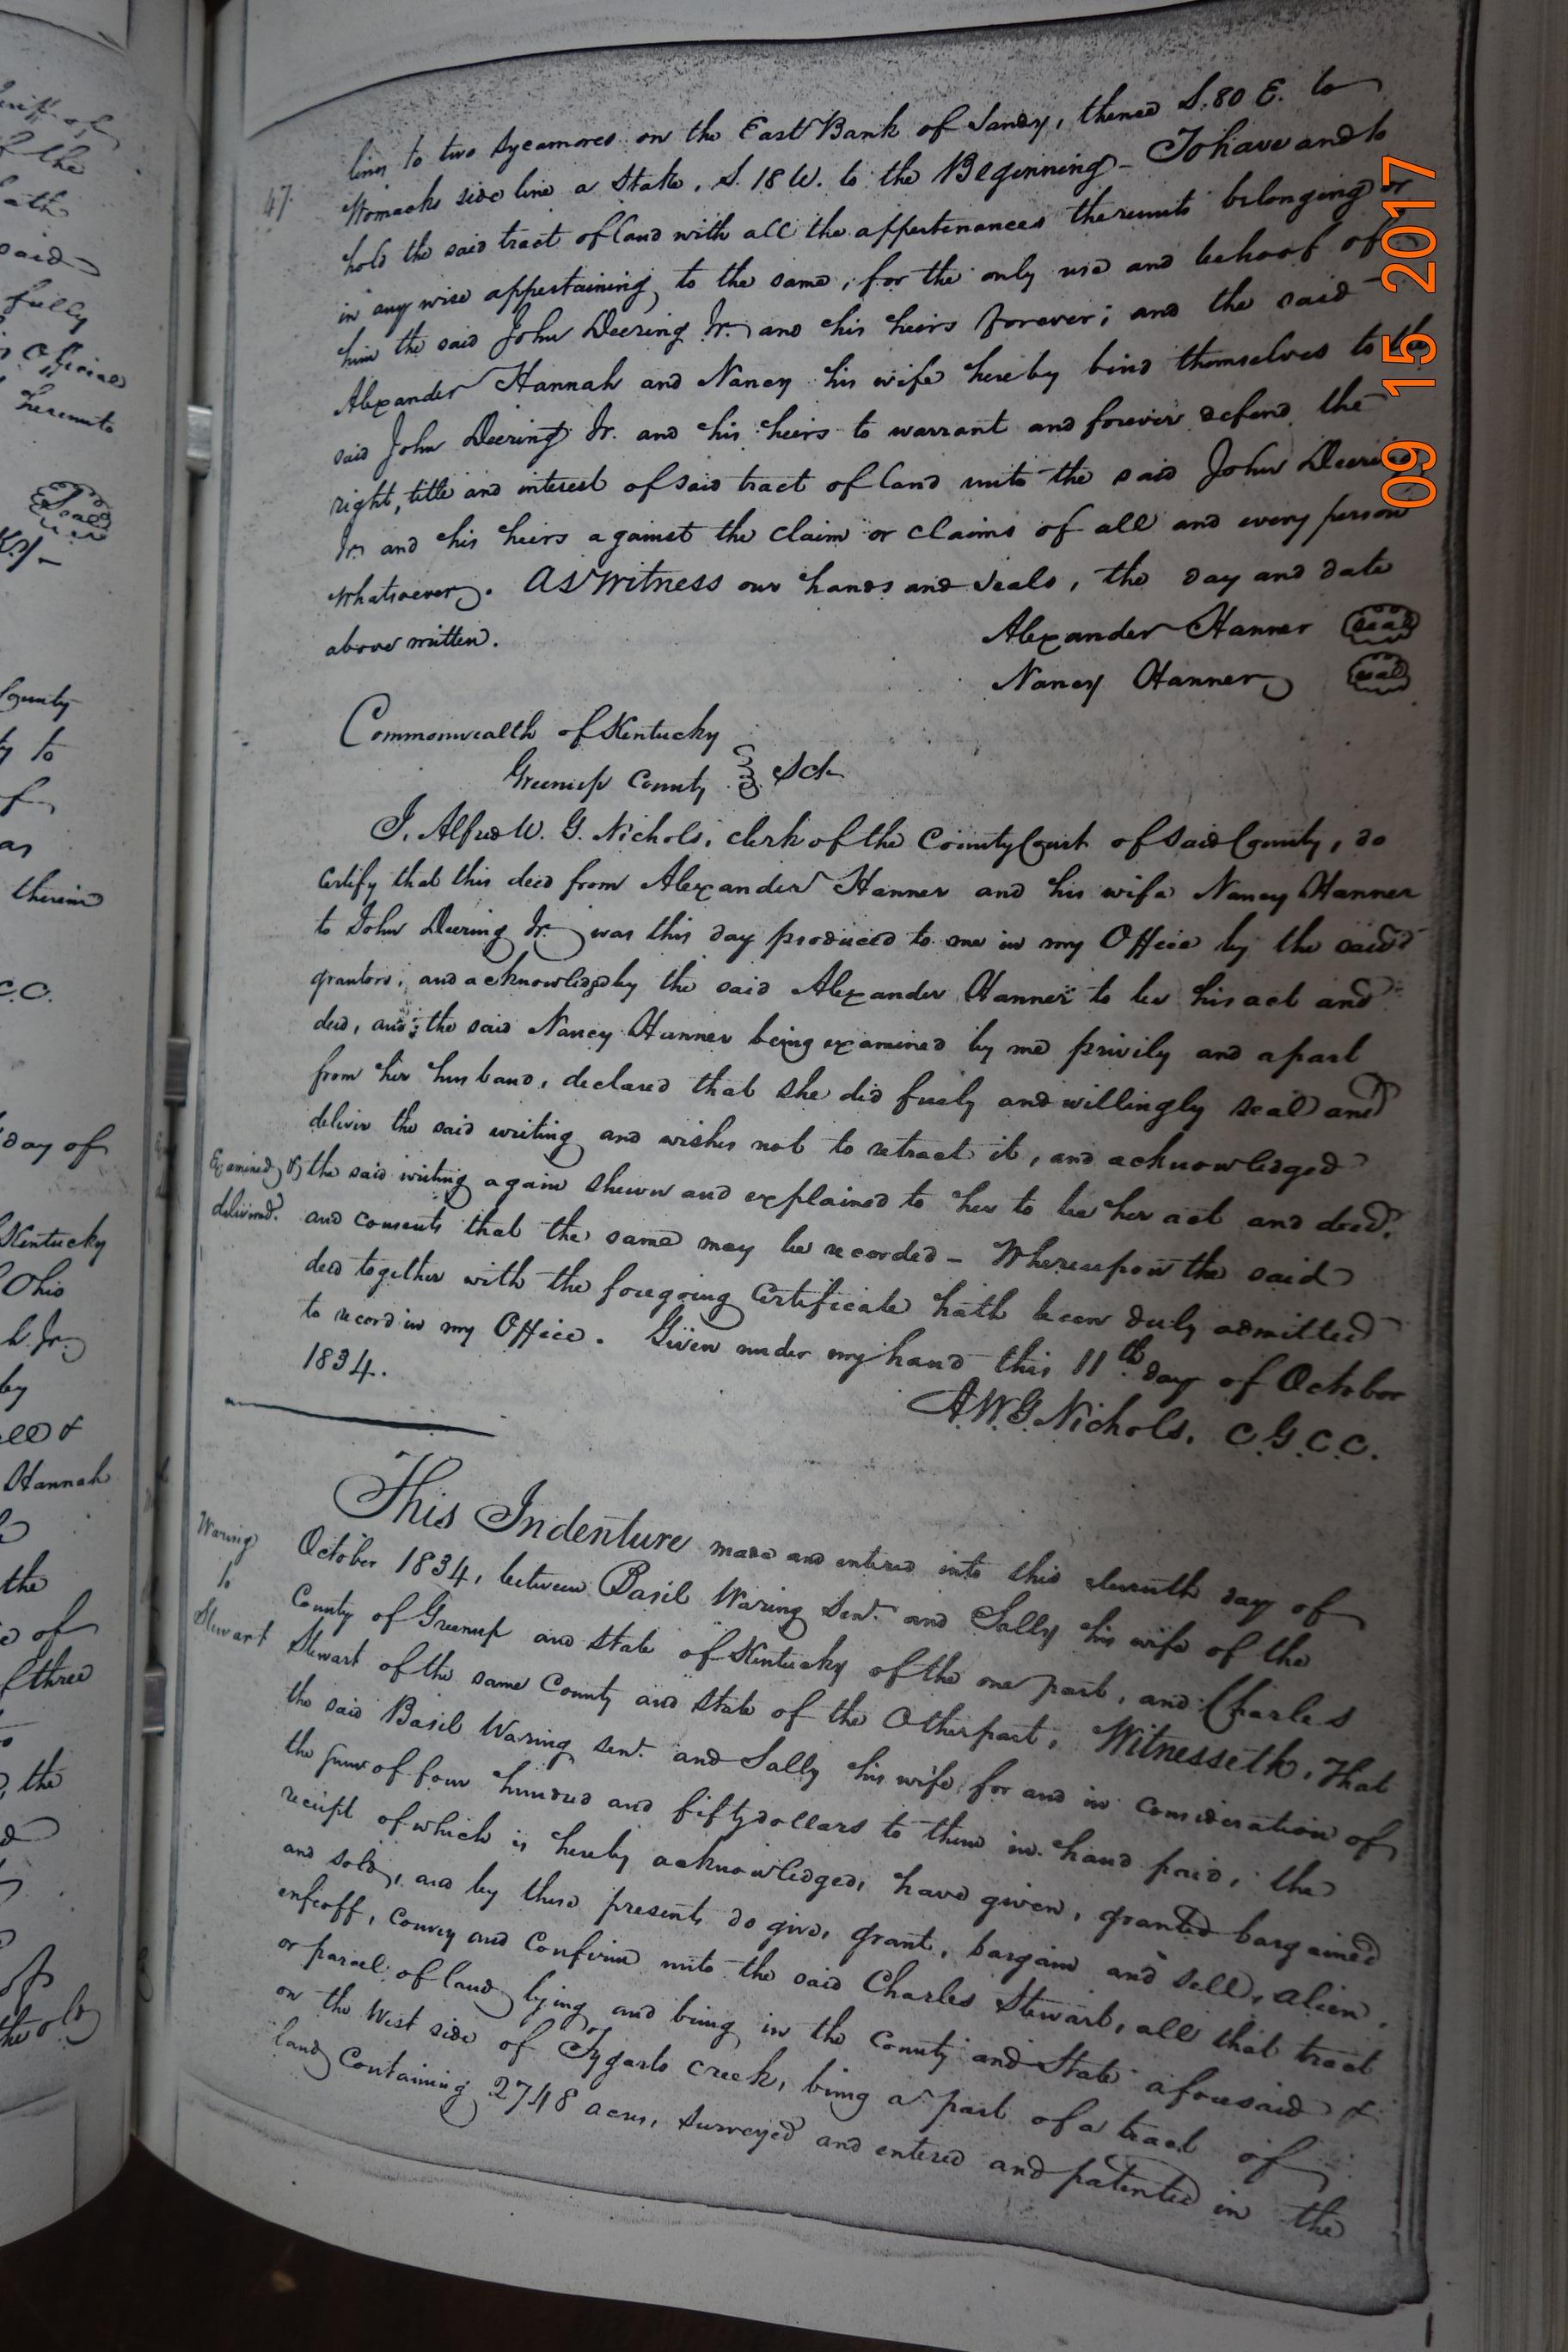 47.
lines to two Sycamores on the East Bank of Sandy, thence S. 80 E. to
Womacks side line a Stake, S. 18 W. to the Beginning - To have and to
hold the said tract of land with all the appertenances thereunto belonging or
in any wise appertaining, to the same, for the only use and behoof of
him the said John Deering Jr. and his heirs forever; and the said
Alexander Hannah and Nancy his wife hereby bind themselves to the
said John Deering Jr. and his heirs to warrant and forever defend the
right, title and interest of said tract of land unto the said John Deering
Jr. and his heirs against the claim or claims of all and every person
whatsoever. As witness our hands and seals, the day and date
above written.
Alexander Hanner seal
Nancy Hanner seal
Commonwealth of Kentucky
Greenup County Sct
I, Alfred W. G. Nichols, clerk of the County Court of said County, do
certify that this deed from Alexander Hanner and his wife Nancy Hanner
to John Deering Jr. was this day produced to me in my Office by the said
grantors, and acknowledged by the said Alexander Hanner to be his act and
deed, and the said Nancy Hanner being examined by me privily and apart
from her husband, declared that she did freely and willingly seal and
deliver the said writing and wishes not to retract it, and acknowledged
Examined & delivered.
the said writing again shewn and explained to her to be her act and deed,
and consents that the same may be recorded - Whereupon the said
deed together with the foregoing Certificate hath been duly admitted
to record in my Office. Given under my hand this 11th day of October
1834.
A.W.G. Nichols, C.G.C.C.
Waring
to
Stewart
This Indenture made and entered into this eleventh day of
October 1834, between Basil Waring Senr. and Sally his wife of the
County of Greenup and State of Kentucky of the one part, and Charles
Stewart of the same County and State of the Other part, Witnesseth, That
the said Basil Waring Senr. and Sally his wife for and in consideration of
the sum of four hundred and fifty dollars to them in hand paid, the
receipt of which is hereby acknowledged, have given, granted bargained
and sold, and by these presents do give, grant, bargain and sell, alien,
enfeoff, convey and confirm unto the said Charles Stewart, all that tract
or parcel of land lying and being in the County and State aforesaid &
on the West side of Tygarts creek, being a part of a tract of
land containing 2748 acres, surveyed and entered and patented in the
09 15 2017